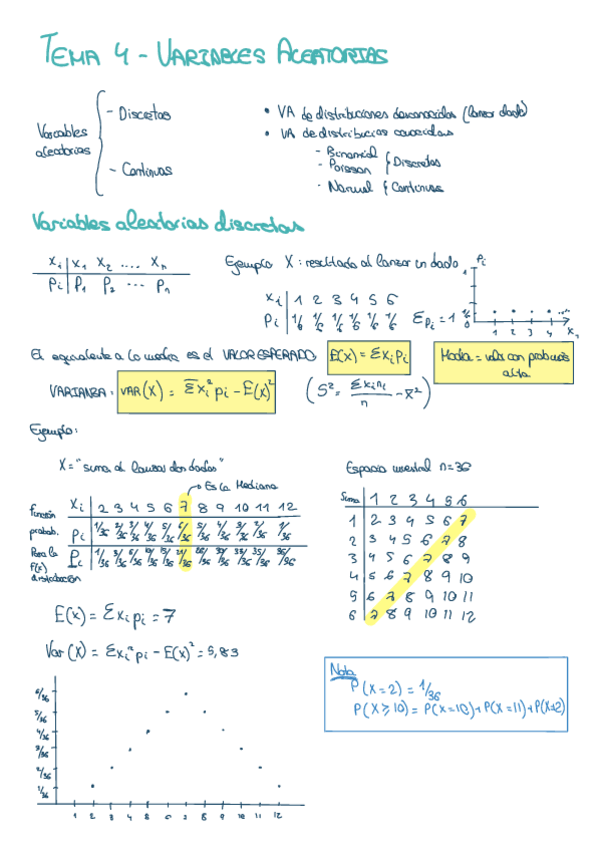 TEMA 4 - VARIABLES ALEATORIAS
Variables aleatorias
- Discretas
- Continuas
• VA de distribuciones desconocidas (lanzar dado)
• VA de distribución conocidas
- Binomial
- Poisson
} Discretas
- Normal { Continuas
Variables aleatorias discretas
Xi | X1 X2 .... Xn
Pi | P1 P2 ... Pn
Ejemplo X: resultado al lanzar un dado
Xi | 1 2 3 4 5 6
Pi | 1/6 1/6 1/6 1/6 1/6 1/6 ΣPi = 1
Pi
1
1/6
0
1 2 3 4 X
El equivalente a la media es el VALOR ESPERADO E(X) = Σxipi
Moda = valor con prob más alta
VARIANZA: VAR(X) = Σxi²pi - E(x)² (S² = Σxi ni / n - x̄²)
Ejemplo:
X = "suma al lanzar dos dados"
Es la Mediana
Función probab.
Xi | 2 3 4 5 6 7 8 9 10 11 12
Pi | 1/36 2/36 3/36 4/36 5/36 6/36 5/36 4/36 3/36 2/36 1/36
Para la F(x) distribución
Pi | 1/36 3/36 6/36 10/36 15/36 21/36 26/36 30/36 33/36 35/36 36/36
Espacio muestral n=36
Suma | 1 2 3 4 5 6
1 | 2 3 4 5 6 7
2 | 3 4 5 6 7 8
3 | 4 5 6 7 8 9
4 | 5 6 7 8 9 10
5 | 6 7 8 9 10 11
6 | 7 8 9 10 11 12
E(x) = Σxipi = 7
Var(X) = Σxi²pi - E(x)² = 5,83
Nota
P(X=2) = 1/36
P(X≥10) = P(X=10)+P(X=11)+P(X=12)
6/36
5/36
4/36
3/36
2/36
1/36
1 2 3 4 5 6 7 8 9 10 11 12